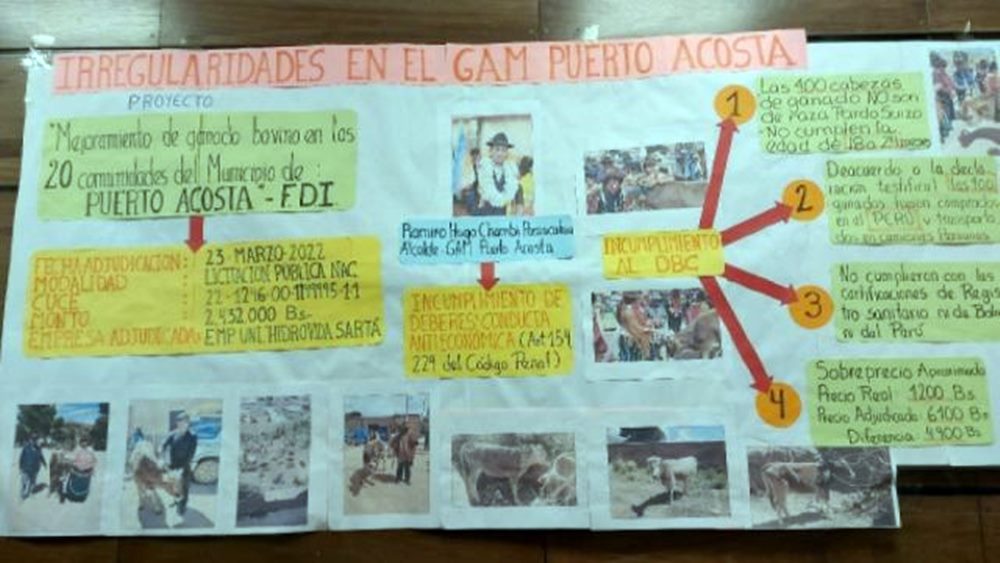 IRREGULARIDADES EN EL GAM PUERTO ACOSTA
PROYECTO
"Mejoramiento de ganado bovino en las
20 comunidades del Municipio de:
PUERTO ACOSTA" - FDI
FECHA ADJUDICACION: 23 MARZO-2022
MODALIDAD : LICITACION PUBLICA NAC.
CUCE : 22-1246-00-
MONTO : 2.432.000 Bs.
EMPRESA ADJUDICADA: EMP UNI. HIDROVIDA SARTA
Ramiro Hugo Chambi
Alcalde - GAM Puerto Acosta
INCUMPLIMIENTO DE
DEBERES" CONDUCTA
ANTIECONOMICA (Art 154
224 del Código Penal)
INCUMPLIMIENTO
AL DBC
1
Las 400 cabezas
de ganado NO son
de raza Pardo Suizo
- No cumplen la
edad de 18 a 24
2
Deacuerdo a la decla
ración testifical las 400
ganados fueron comprados
en el PERÚ y transporta
dos en camiones Peruanos
3
No cumplieron con las
certificaciones de Regis
tro sanitario ni de
ni del Perú.
4
Sobreprecio Aproximado
Precio Real 1200 Bs.
Precio Adjudicado 6100 Bs
Diferencia 4900 Bs